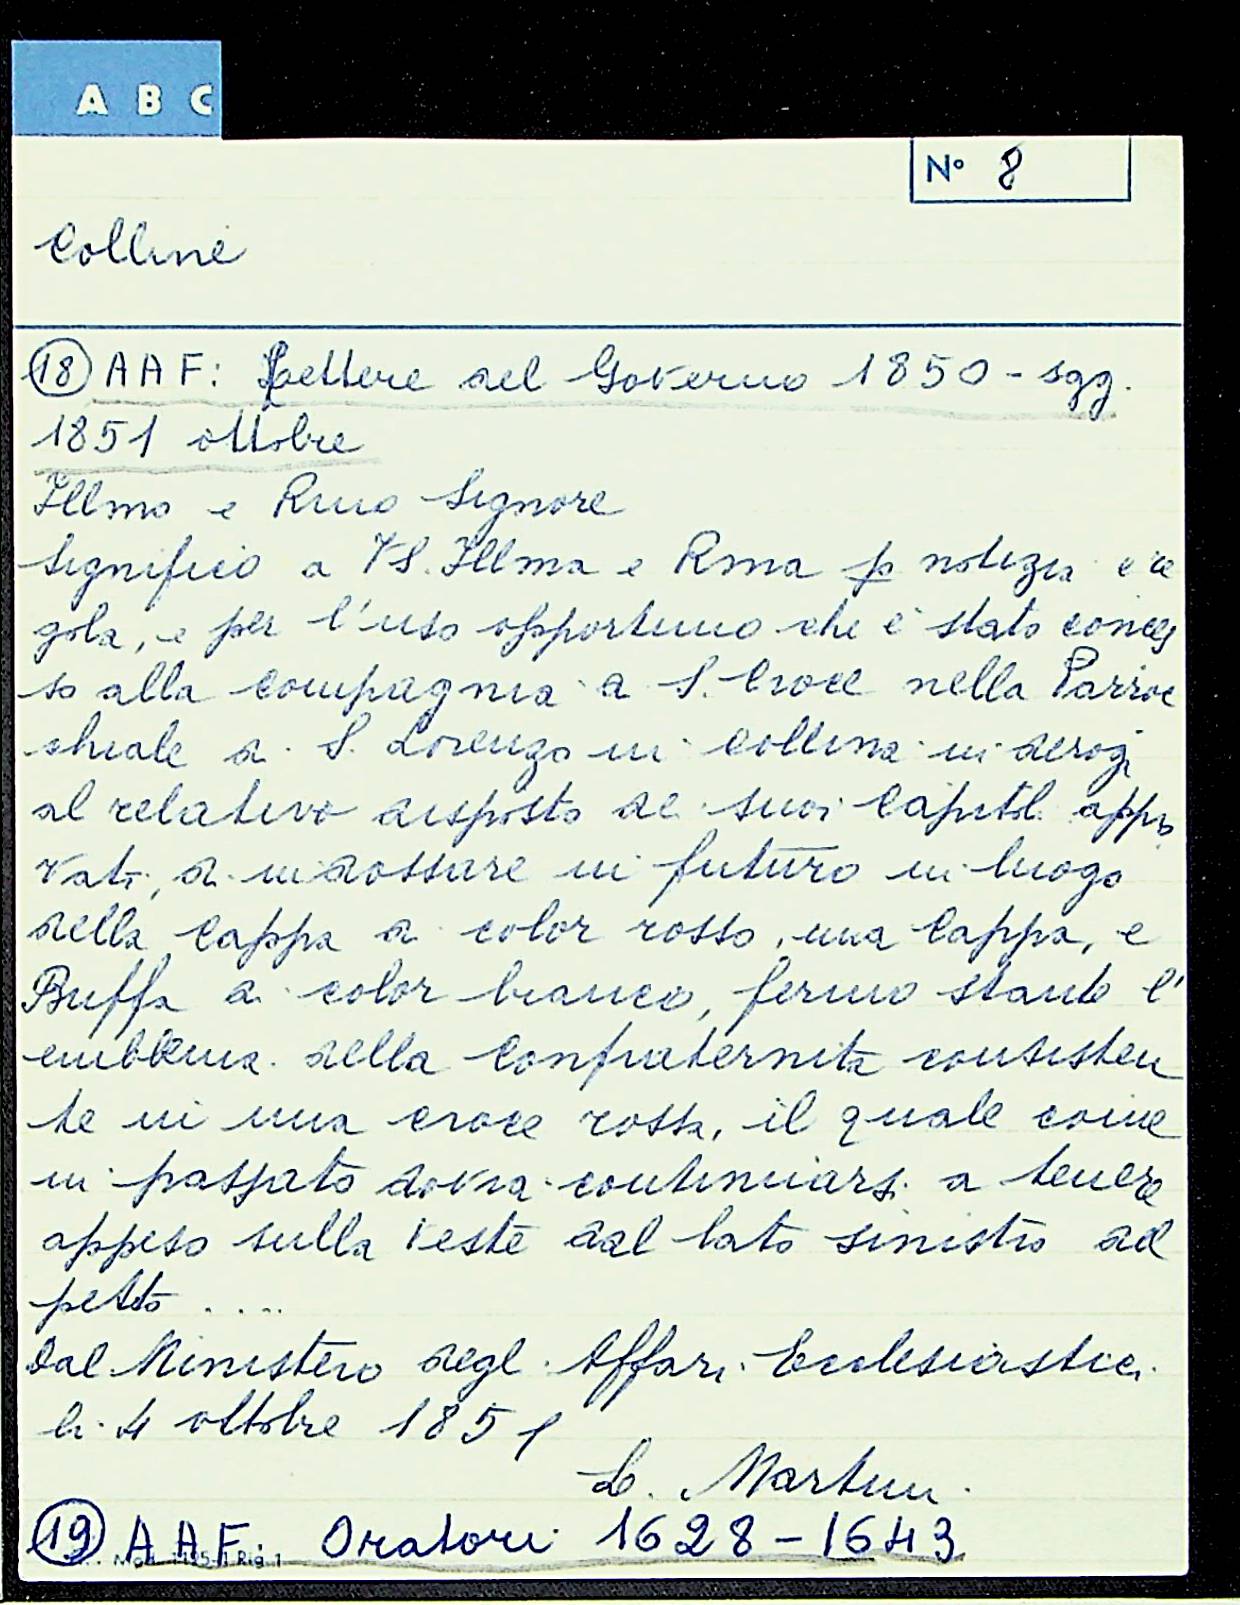 A B C
N° 8
Colline
18 AAF: Lettere del Governo 1850-sgg.
1851 ottobre
Illmo e Rmo Signore
Significo a VS. Illma e Rma p notizia e re
gola, e per l'uso opportuno che è stato conces
so alla Compagnia di S. Croce nella Parroc
chiale di S. Lorenzo in Collina in derog.
al relativo disposto dei suoi Capitoli appro
vati, di indossare in futuro in luogo
della Cappa di color rosso, una Cappa, e
Buffa di color bianco, fermo stante l'
emblema della Confraternita consisten
te in una croce rossa, il quale come
in passato dovrà continuarsi a tenere
appeso sulla veste dal lato sinistro del
petto ....
Dal Ministero degli Affari Ecclesiastici
li 4 ottobre 1851
L. Martini
19 AAF: Oratori 1628-1643